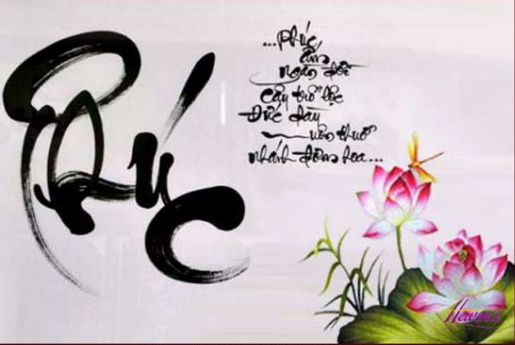 Phúc
...Phúc
ấm
ngàn đời
cây trổ lộc
Đức dày
muôn thuở
nhánh đơm hoa...